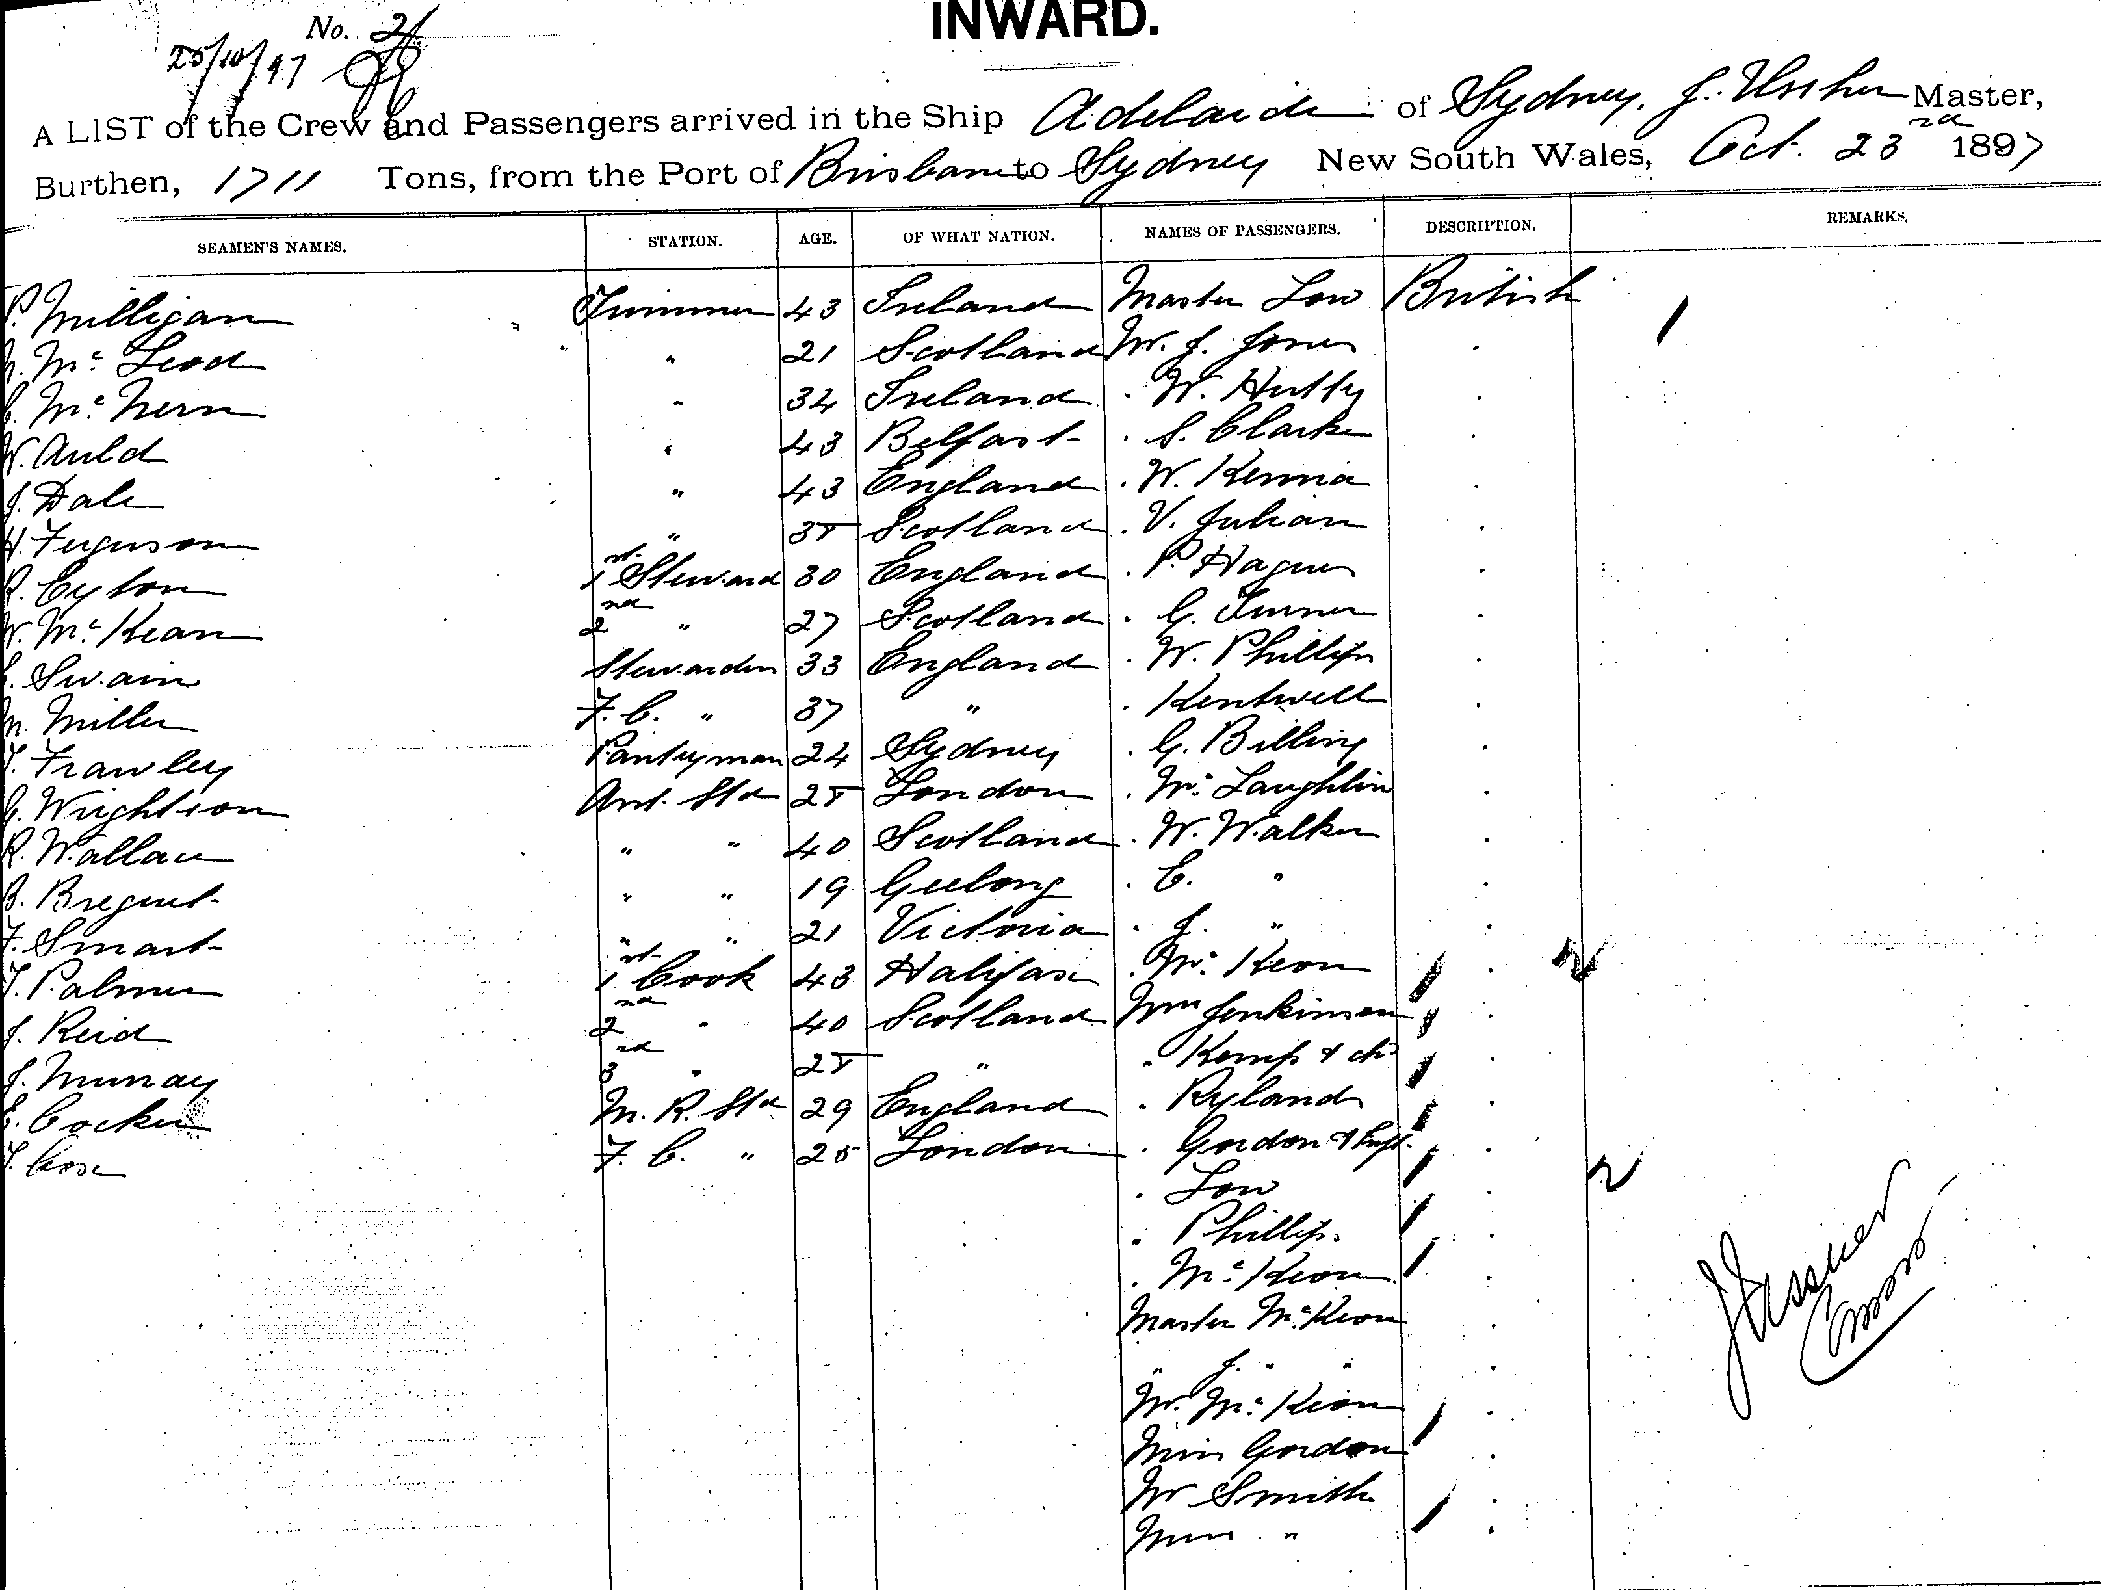 INWARD.
No. 2
25/10/97
A LIST of the Crew and Passengers arrived in the Ship Adelaide of Sydney, J. Ussher Master,
Burthen, 1711 Tons, from the Port of Brisbane to Sydney New South Wales, Oct. 23rd 1897
SEAMEN'S NAMES. STATION. AGE. OF WHAT NATION. NAMES OF PASSENGERS. DESCRIPTION. REMARKS.
P. Milligan Trimmer 43 Ireland Master Low British 1
Mc Leod " 21 Scotland Mr. J. Jones .
Mc Nern " 34 Ireland . W. Hutty .
W. Auld " 43 Belfast . S. Clarke .
J. Dale " 43 England . W. Kenna .
H. Ferguson " 35 Scotland . V. Julian .
Eyton 1st Steward 30 England . P. Hagner .
W. Mc Kean 2nd " 27 Scotland . G. Turner .
Swain Stewardess 33 England . W. Phillips .
M. Miller F. C. " 37 " . Kentwell .
T. Frawley Pantryman 24 Sydney . G. Billing .
G. Wrightson Asst. Std 25 London . Mc Laughlin .
R. Wallace " " 40 Scotland . W. Walker .
B. Breguet " " 19 Geelong . E. " .
F. Smart " " 21 Victoria . J. " .
T. Palmer 1st Cook 43 Halifax . Mc Keon . 2
J. Reid 2nd " 40 Scotland Mrs Jenkinson .
J. Murray 3rd " 25 " . Kemp & ch .
E. Cocker M. R. Std 29 England . Ryland .
T. Cox F. C. " 25 London . Gordon & Inft. .
. Low . 2
. Phillips .
. Mc Keon .
Master McKeon .
" J. " " .
Mr. Mc Keon .
Miss Gordon .
Mr Smith .
Miss " .
J Ussher